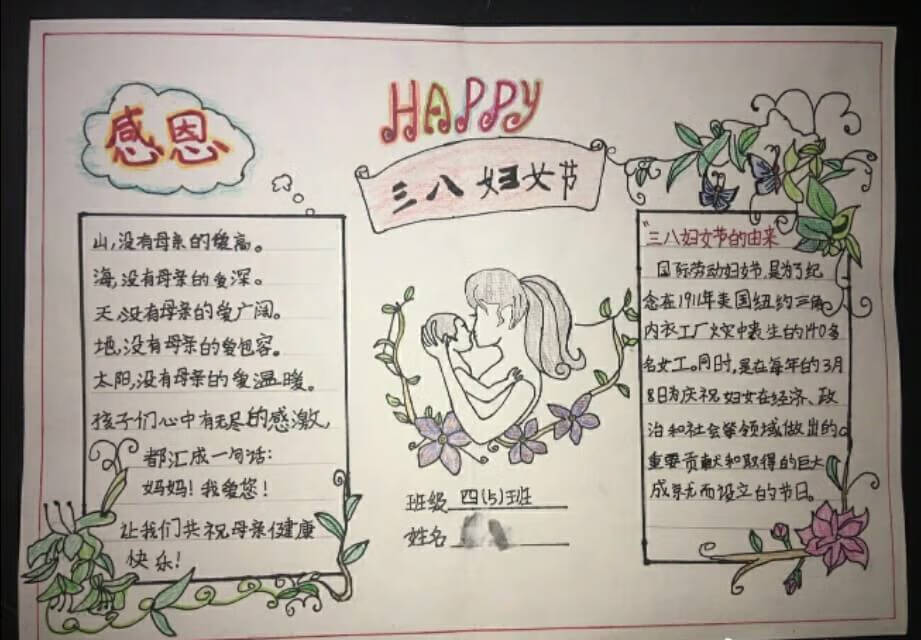 感恩
HAPPY
三八妇女节
山,没有母亲的爱高。
海,没有母亲的爱深。
天,没有母亲的爱广阔。
地,没有母亲的爱包容。
太阳,没有母亲的爱温暖。
孩子们心中有无尽的感激,
都汇成一句话:
妈妈!我爱您!
让我们共祝母亲健康
快乐!
班级 四(5)班
姓名
"三八妇女节的由来"
国际劳动妇女节,是为了纪
念在1911年美国纽约三角
内衣工厂火灾中丧生的140多
名女工。同时,是在每年的3月
8日为庆祝妇女在经济、政
治和社会等领域做出的
重要贡献和取得的巨大
成就而设立的节日。